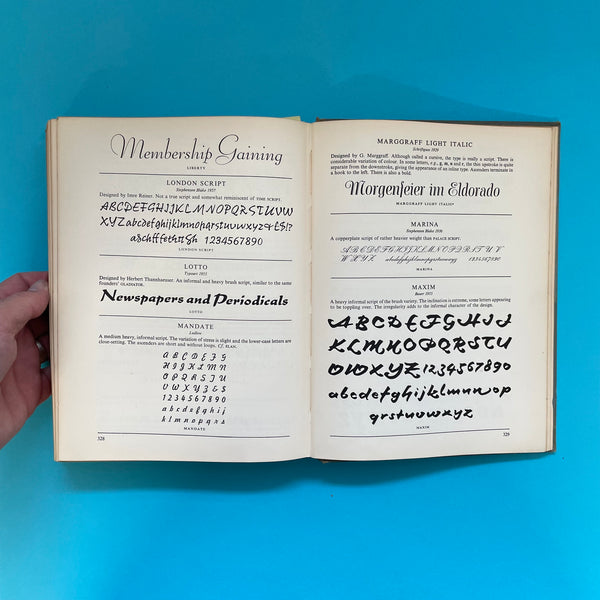 Membership Gaining
LIBERTY
LONDON SCRIPT
Stephenson Blake 1957
Designed by Imre Reiner. Not a true script and somewhat reminiscent of TIME SCRIPT.
ABCDEFGHIJKLMNOPQRSTUVW
XYZabcdefghijklmnopqrstuvwxyz&£!?
chffffethttßh 1234567890
LONDON SCRIPT
LOTTO
Typoart 1955
Designed by Herbert Thannhaeuser. An informal and heavy brush script, similar to the same
founders' GLADIATOR.
Newspapers and Periodicals
LOTTO
MANDATE
Ludlow
A medium heavy, informal script. The variation of stress is slight and the lower-case letters are
close-setting. The ascenders are short and without loops. Cf. ELAN.
A B C D E F G
H I J K L M N
O P Q R S T U
V W X Y Z & $
1 2 3 4 5 6 7 8 9 0
a b c d e f g h i j
k l m n o p q r s
MANDATE
328
MARGGRAFF LIGHT ITALIC
Schriftguss 1929
Designed by G. Marggraff. Although called a cursive, the type is really a script. There is
considerable variation of colour. In some letters, e.g. g, m, n and r, the thin upstroke is quite
separate from the downstroke, giving the appearance of an inline type. Ascenders terminate in
a hook to the left. There is also a bold.
Morgenfeier im Eldorado
MARGGRAFF LIGHT ITALIC
MARINA
Stephenson Blake 1936
A copperplate script of rather heavier weight than PALACE SCRIPT.
ABCDEFGHIJKLMNOPQRSTUV
WXYZ abcdefghijklmnopqrstuvwxyz 1234567890
MARINA
MAXIM
Bauer 1955
A heavy informal script of the brush variety. The inclination is extreme, some letters appearing
to be toppling over. The irregularity adds to the informal character of the design.
ABCDEFGHIJ
KLMNOPQRSTU
VWXYZ 1234567890
abcdefghijklmnop
qrstuvwxyz
MAXIM
329